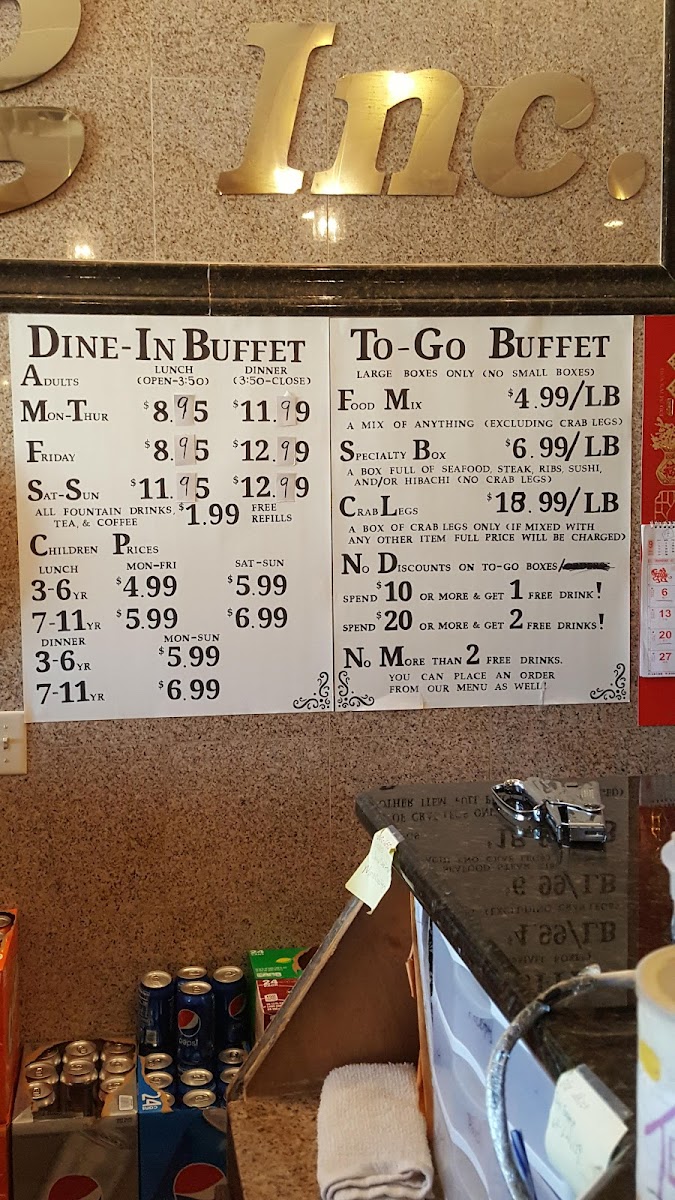 g Inc.
DINE-IN BUFFET
ADULTS LUNCH (OPEN-3:50) DINNER (3:50-CLOSE)
MON-THUR $8.95 $11.99
FRIDAY $8.95 $12.99
SAT-SUN $11.95 $12.99
ALL FOUNTAIN DRINKS, TEA, & COFFEE $1.99 FREE REFILLS
CHILDREN PRICES
LUNCH MON-FRI SAT-SUN
3-6YR $4.99 $5.99
7-11YR $5.99 $6.99
DINNER MON-SUN
3-6YR $5.99
7-11YR $6.99
TO-GO BUFFET
LARGE BOXES ONLY (NO SMALL BOXES)
FOOD MIX $4.99/LB
A MIX OF ANYTHING (EXCLUDING CRAB LEGS)
SPECIALTY BOX $6.99/LB
A BOX FULL OF SEAFOOD, STEAK, RIBS, SUSHI,
AND/OR HIBACHI (NO CRAB LEGS)
CRAB LEGS $18.99/LB
A BOX OF CRAB LEGS ONLY (IF MIXED WITH
ANY OTHER ITEM FULL PRICE WILL BE CHARGED)
NO DISCOUNTS ON TO-GO BOXES/
SPEND $10 OR MORE & GET 1 FREE DRINK!
SPEND $20 OR MORE & GET 2 FREE DRINKS!
NO MORE THAN 2 FREE DRINKS.
YOU CAN PLACE AN ORDER
FROM OUR MENU AS WELL!
6
13
20
27
24
pepsi
24